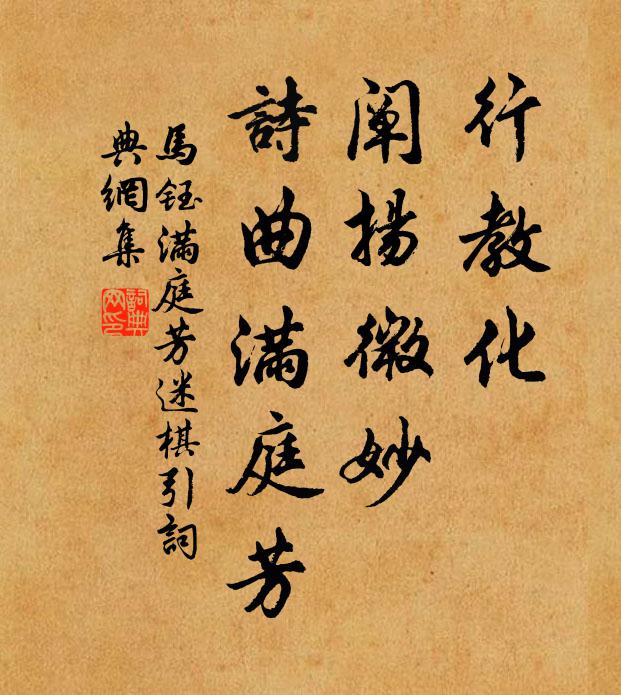 行教化
阐揚微妙
詩曲滿庭芳
馬鈺滿庭芳迷棋引詞
典網集
詞典
网印